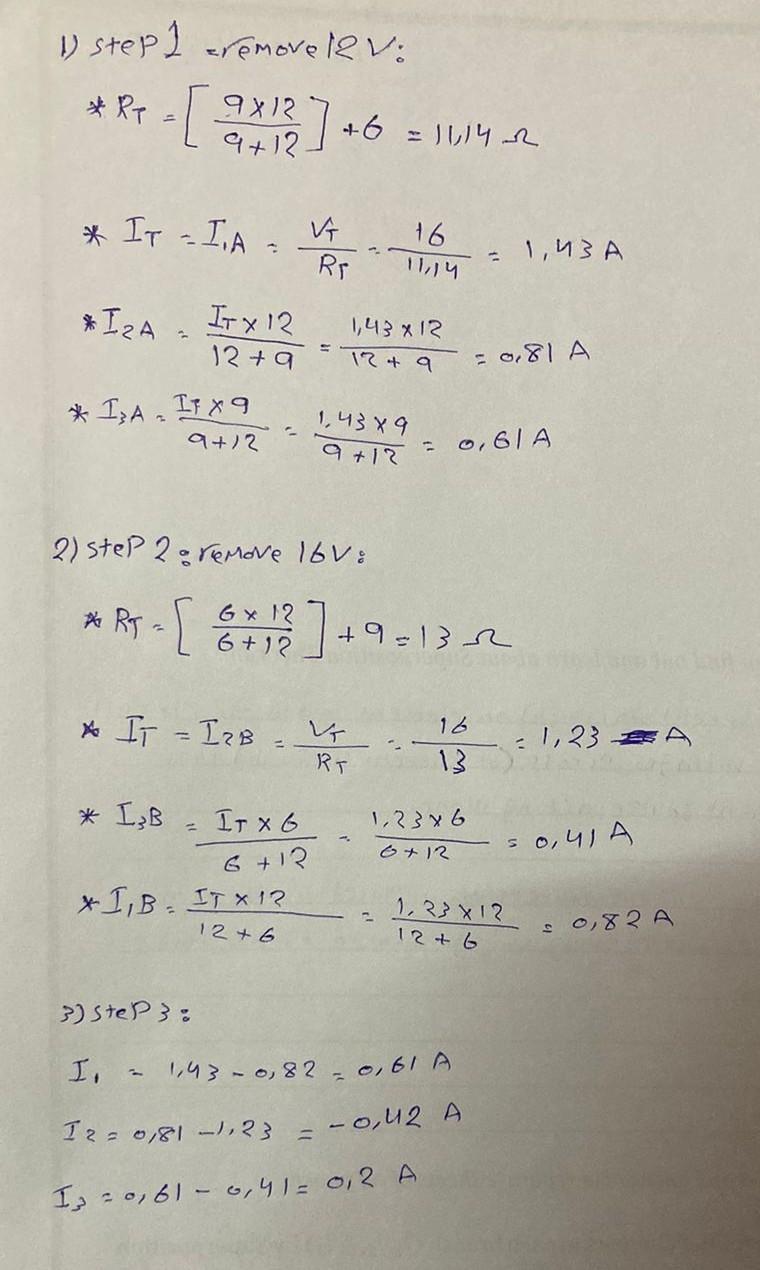 1) steP 1 =remove 12V:
* RT = [9×12 / 9+12] +6 = 11,14 Ω
* IT = I1A = VT / RT = 16 / 11,14 = 1,43 A
* I2A = IT×12 / 12+9 = 1,43×12 / 12+9 = 0,81 A
* I3A = IT×9 / 9+12 = 1,43×9 / 9+12 = 0,61 A
2) steP 2 : remove 16V:
* RT = [6×12 / 6+12] +9 = 13 Ω
* IT = I2B = VT / RT = 16 / 13 = 1,23 A
* I3B = IT×6 / 6+12 = 1,23×6 / 6+12 = 0,41 A
* I1B = IT×12 / 12+6 = 1,23×12 / 12+6 = 0,82 A
3) steP 3:
I1 = 1,43 - 0,82 = 0,61 A
I2 = 0,81 - 1,23 = -0,42 A
I3 = 0,61 - 0,41 = 0,2 A